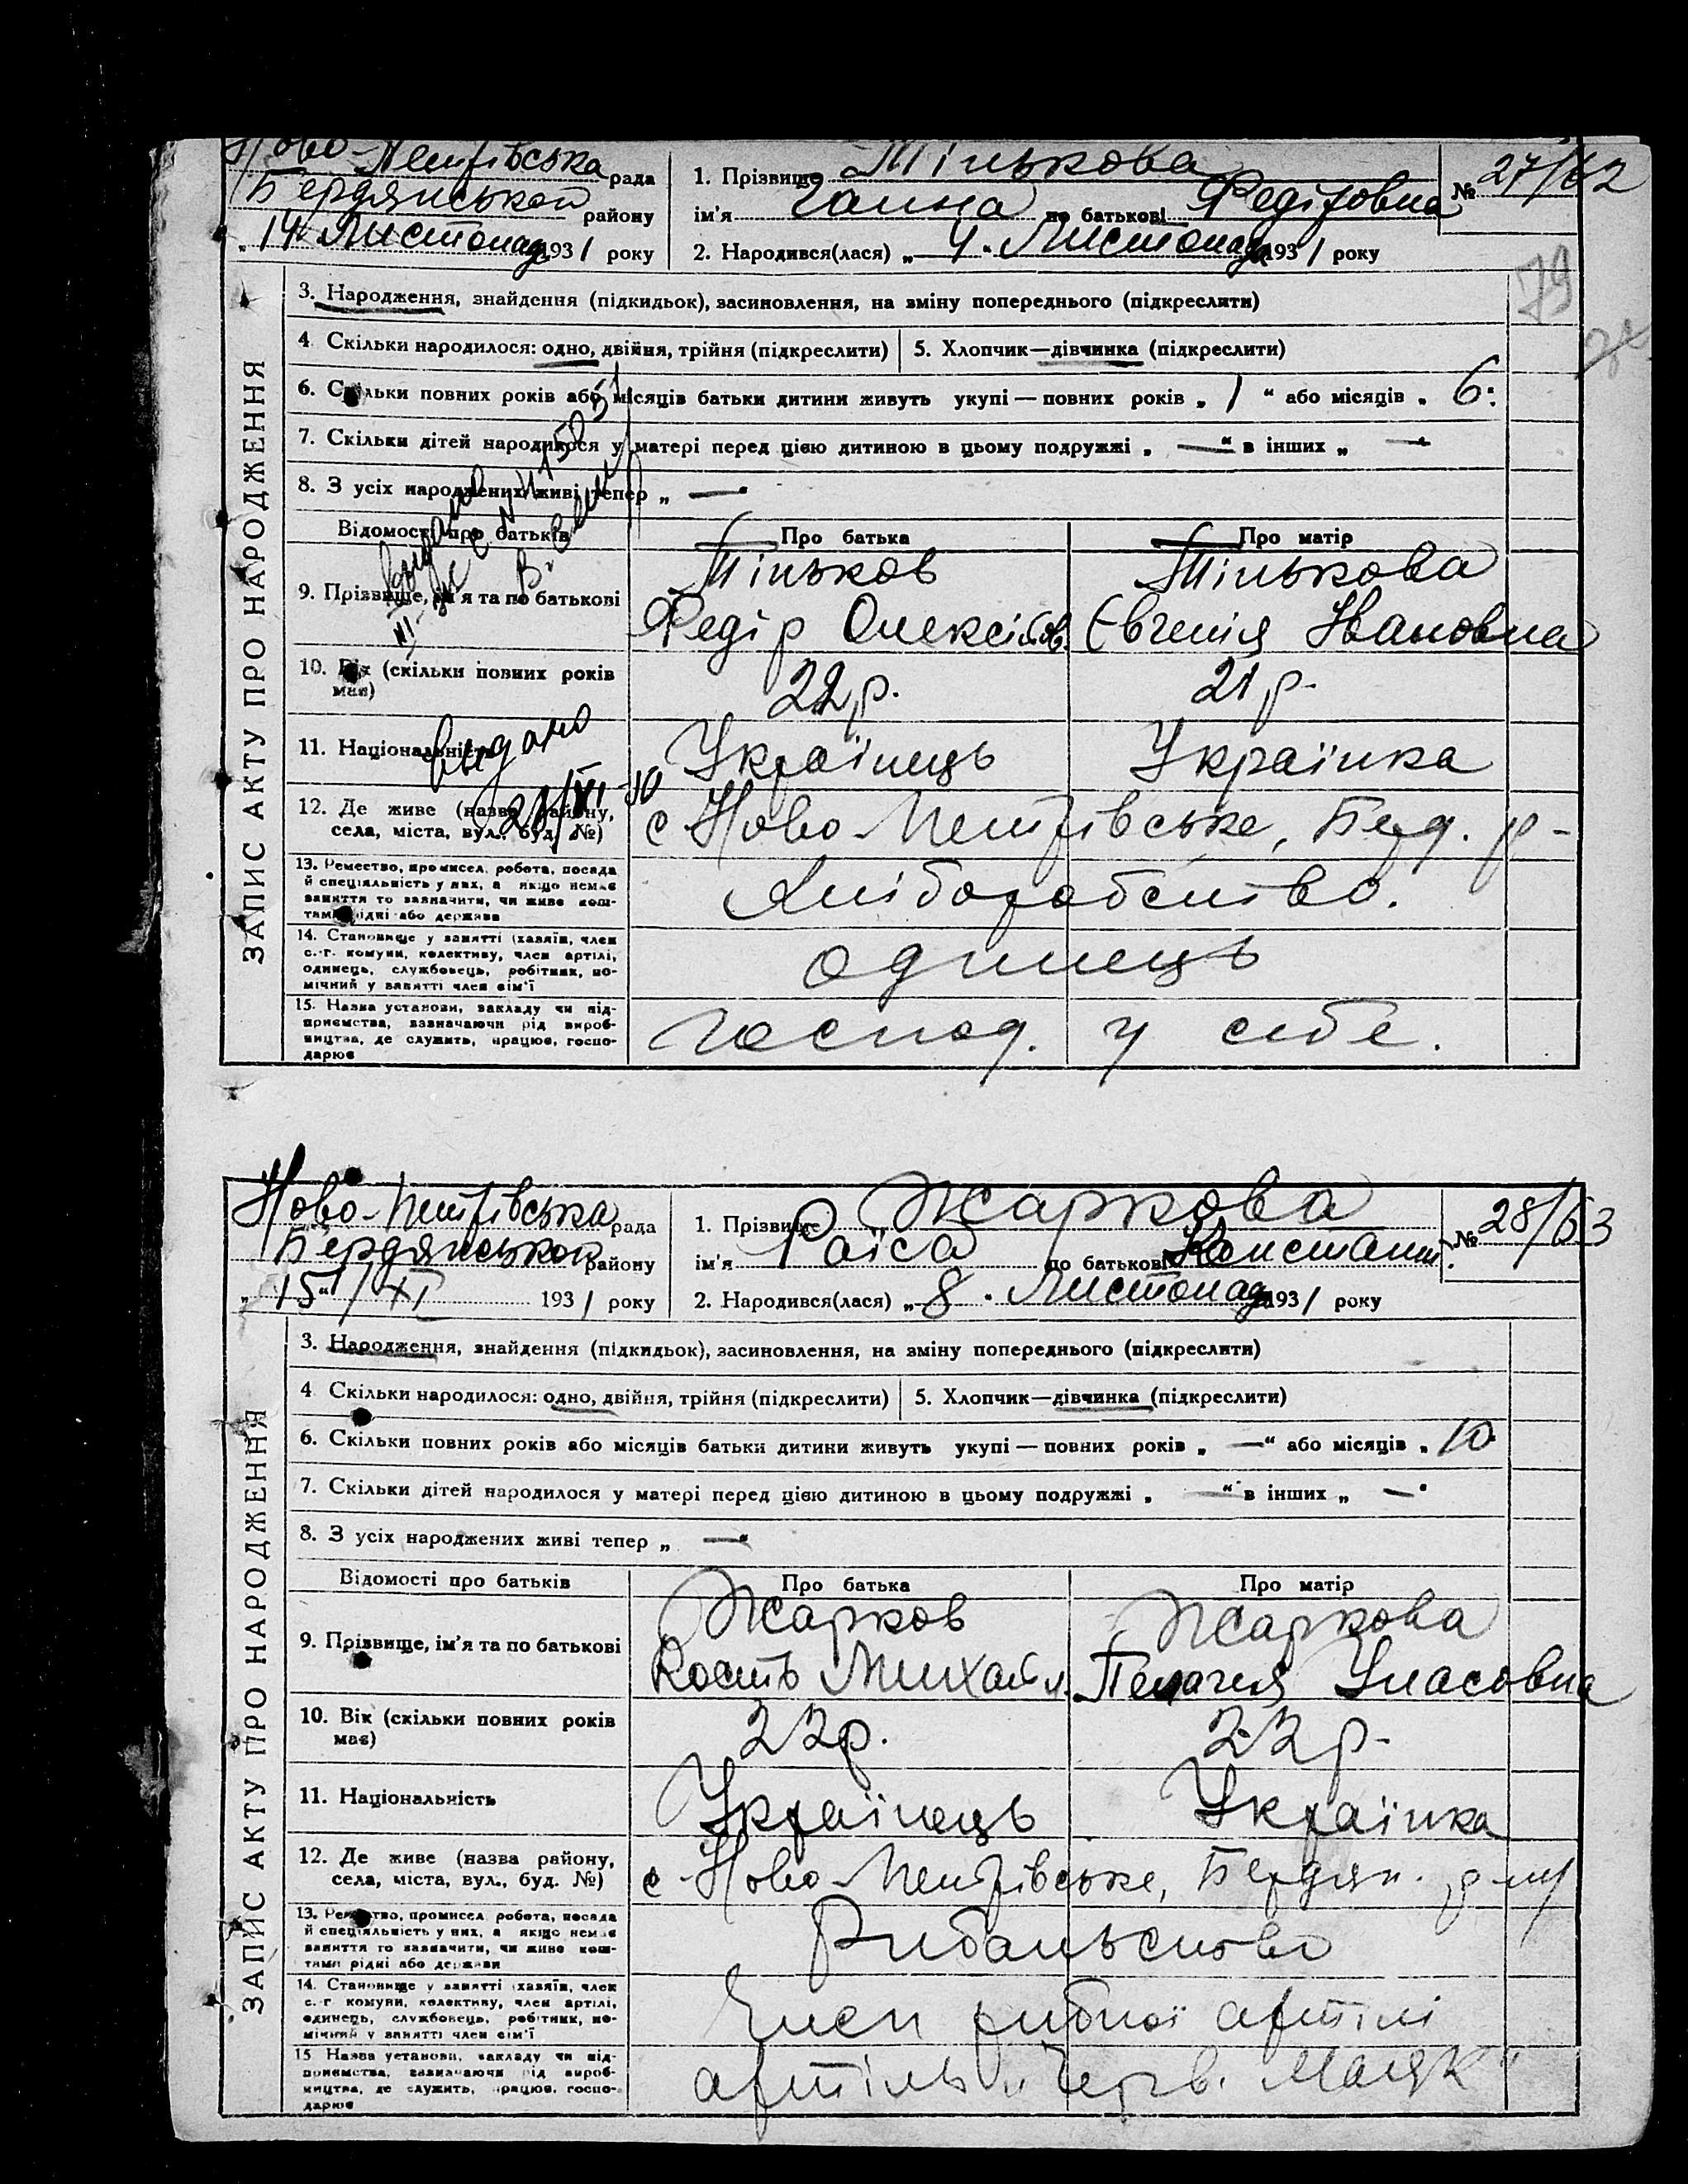 Ново-Петрівська рада
Бердянської району
„14" Листопада 1931 року
1. Прізвище Тінькова
ім'я Ганна по батькові Федорівна
№ 27/62
2. Народився(лася) „4" Листопада 1931 року
79
ЗАПИС АКТУ ПРО НАРОДЖЕННЯ
3. Народження, знайдення (підкидьок), засиновлення, на зміну попереднього (підкреслити)
4 Скільки народилося: одно, двійня, трійня (підкреслити)
5. Хлопчик—дівчинка (підкреслити)
6. Скільки повних років або місяців батьки дитини живуть укупі — повних років „ 1 " або місяців „ 6"
7. Скільки дітей народилося у матері перед цією дитиною в цьому подружжі „ — " в інших „ — "
8. З усіх народжених живі тепер „ — "
Відомості про батьків
Про батька
Про матір
9. Прізвище, ім'я та по батькові
Тіньков
Федір Олексійов.
Тінькова
Євгенія Івановна
10. Вік (скільки повних років має)
22 р.
21 р.
11. Національність
Українець
Українка
Выдано
21/XI-40
12. Де живе (назва району,
села, міста, вул., буд. №)
с Ново-Петрівське, Берд. р-
13. Ремество, промисел, робота, посада
й спеціяльність у них, а якщо немає
заняття то зазначити, чи живе кош-
тами рідні або держави
Хліборобство.
14. Становище у занятті (хазяїн, член
с.-г. комуни, колективу, член артілі,
одинець, службовець, робітник, по-
мічний у занятті член сім'ї
одинець
15. Назва установи, закладу чи під-
приємства, зазначаючи рід вироб-
ництва, де служить, працює, госпо-
дарює
Господ. у себе.
Ново-Петрівська рада
Бердянської району
„15"/XI 1931 року
1. Прізвище Жаркова
ім'я Раїса по батькові Констант.
№ 28/63
2. Народився(лася) „8" Листопада 1931 року
ЗАПИС АКТУ ПРО НАРОДЖЕННЯ
3. Народження, знайдення (підкидьок), засиновлення, на зміну попереднього (підкреслити)
4 Скільки народилося: одно, двійня, трійня (підкреслити)
5. Хлопчик—дівчинка (підкреслити)
6. Скільки повних років або місяців батьки дитини живуть укупі — повних років „ — " або місяців „ 10"
7. Скільки дітей народилося у матері перед цією дитиною в цьому подружжі „ — " в інших „ — "
8. З усіх народжених живі тепер „ — "
Відомості про батьків
Про батька
Про матір
9. Прізвище, ім'я та по батькові
Жарков
Кость Михайл.
Жаркова
Пелагея Уласовна
10. Вік (скільки повних років має)
22 р.
22 р.
11. Національність
Українець
Українка
12. Де живе (назва району,
села, міста, вул., буд. №)
с Ново-Петрівське, Бердян. р-ну
13. Ремество, промисел, робота, посада
й спеціяльність у них, а якщо немає
заняття то зазначити, чи живе кош-
тами рідні або держави
Рибальство
14. Становище у занятті (хазяїн, член
с.-г. комуни, колективу, член артілі,
одинець, службовець, робітник, по-
мічний у занятті член сім'ї
Член рибної артілі
15 Назва установи, закладу чи під-
приємства, зазначаючи рід вироб-
ництва, де служить, працює, госпо-
дарює
артіль „Черв. Маяк"